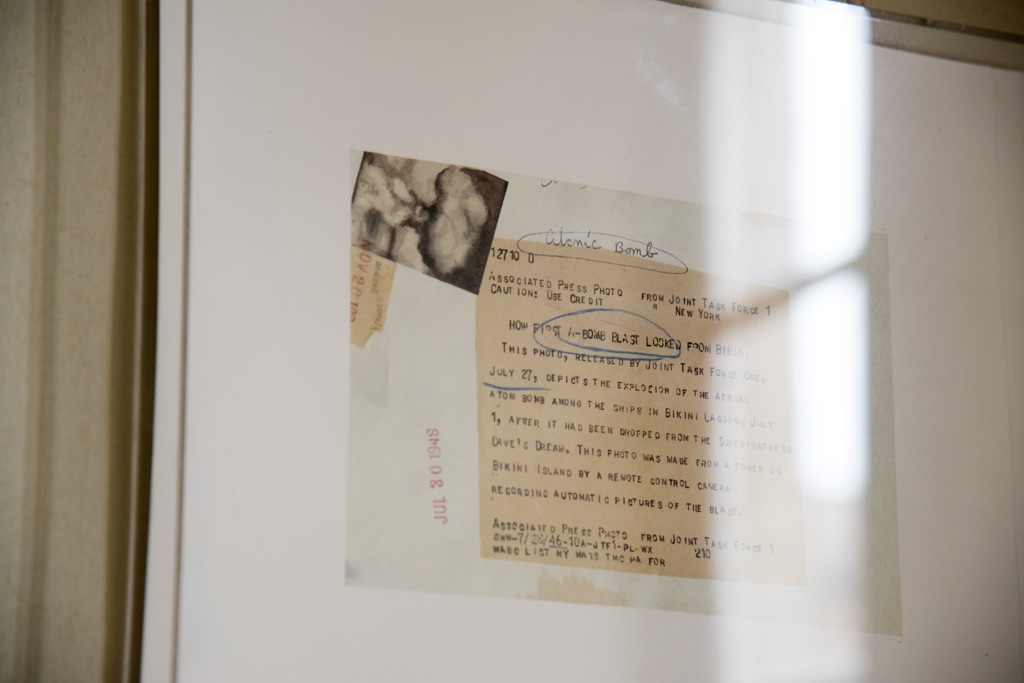 Atomic Bomb
12710 D
ASSOCIATED PRESS PHOTO FROM JOINT TASK FORCE 1
CAUTION: USE CREDIT " NEW YORK
HOW FIRST A-BOMB BLAST LOOKED FROM BIKINI
THIS PHOTO, RELEASED BY JOINT TASK FORCE ONE,
JULY 27, DEPICTS THE EXPLOSION OF THE AERIAL
ATOM BOMB AMONG THE SHIPS IN BIKINI LAGOON, JULY
1, AFTER IT HAD BEEN DROPPED FROM THE SUPERFORTRESS
DAVE'S DREAM. THIS PHOTO WAS MADE FROM A TOWER ON
BIKINI ISLAND BY A REMOTE CONTROL CAMERA
RECORDING AUTOMATIC PICTURES OF THE BLAST.
ASSOCIATED PRESS PHOTO FROM JOINT TASK FORCE 1
210
WABC LIST NY MATS TWC PA FOR
NOV 20
JUL 30 1946